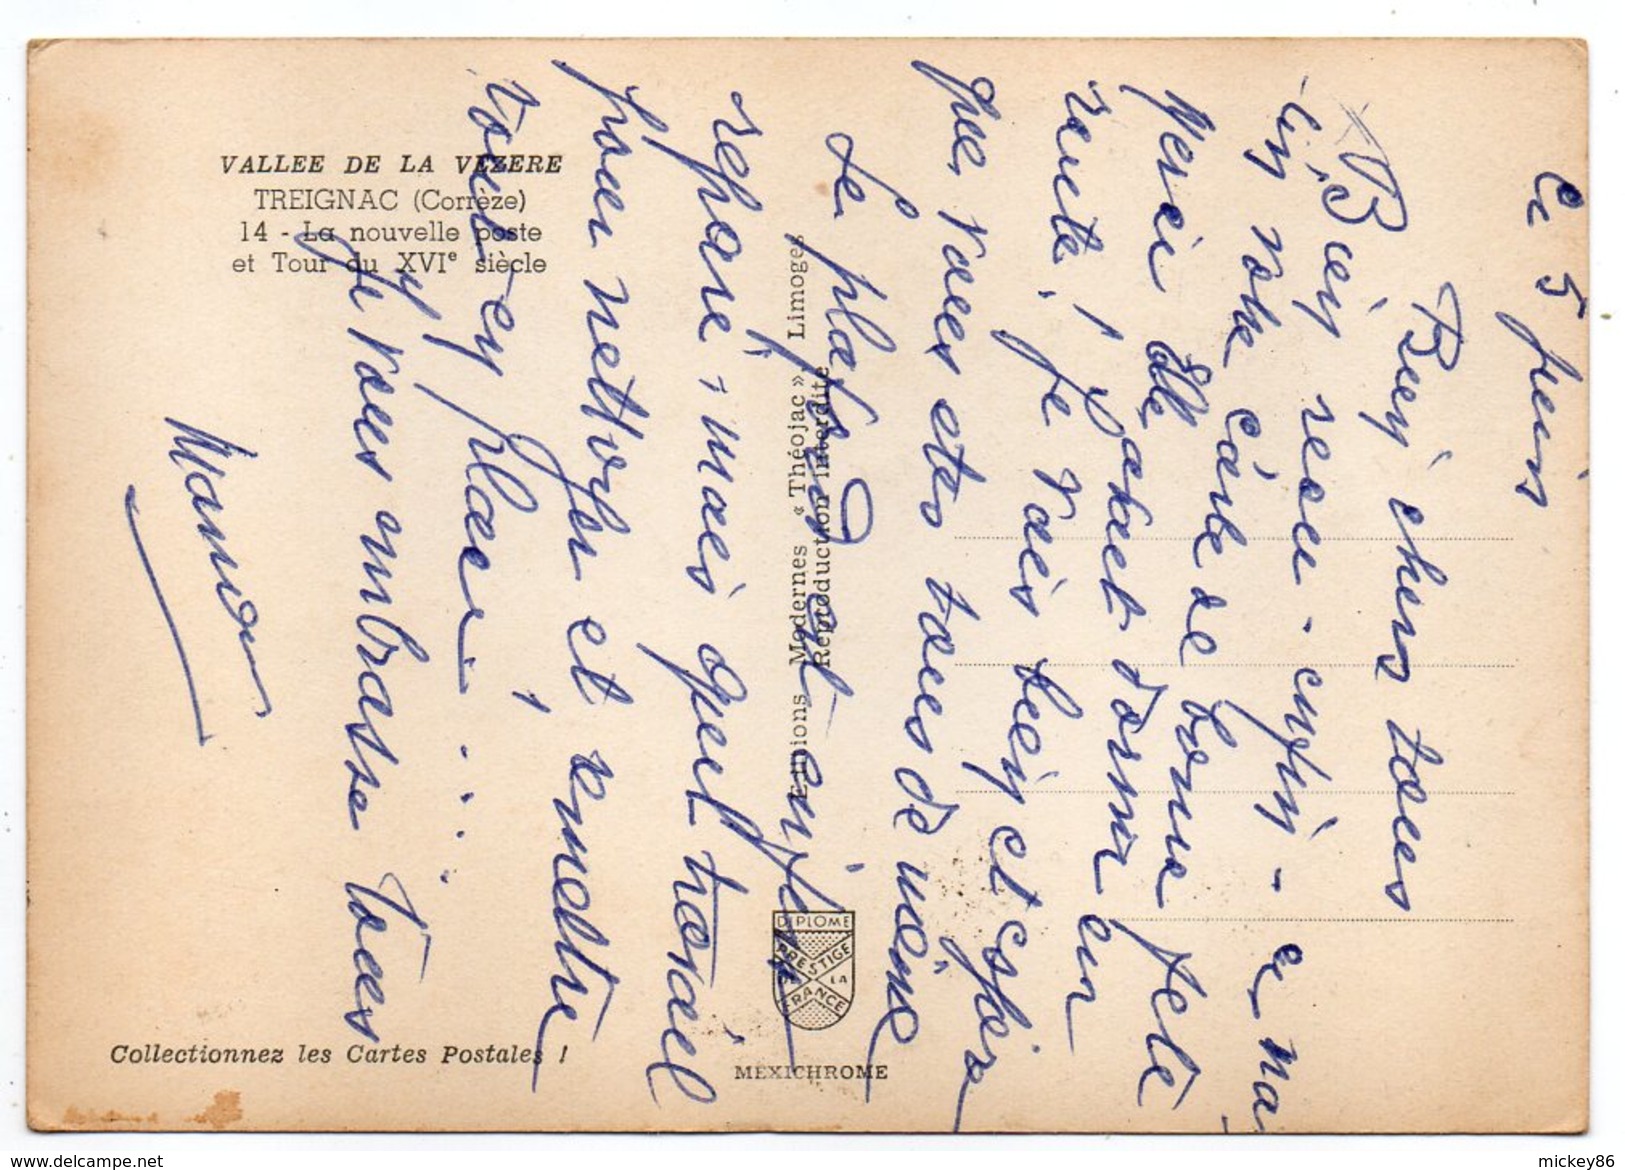 VALLEE DE LA VEZERE
TREIGNAC (Corrèze)
14 - La nouvelle poste
et Tour du XVIe siècle
Editions Modernes « Théojac » Limoges
Reproduction interdite
DIPLOME
PRESTIGE
DE LA
FRANCE
MEXICHROME
Collectionnez les Cartes Postales !
Ce 5 juin
Bien chers tous
Bien reçu - enfin - ce
votre carte de bonne fete
merci
santé, je vais bien et espère
que vous etes tous de même
Le plafond est enfin
réparé, mais quel travail
pour nettoyer et remettre
tout en place . . . .
Je vous embrasse tous
Manou
delcampe.net
mickey86